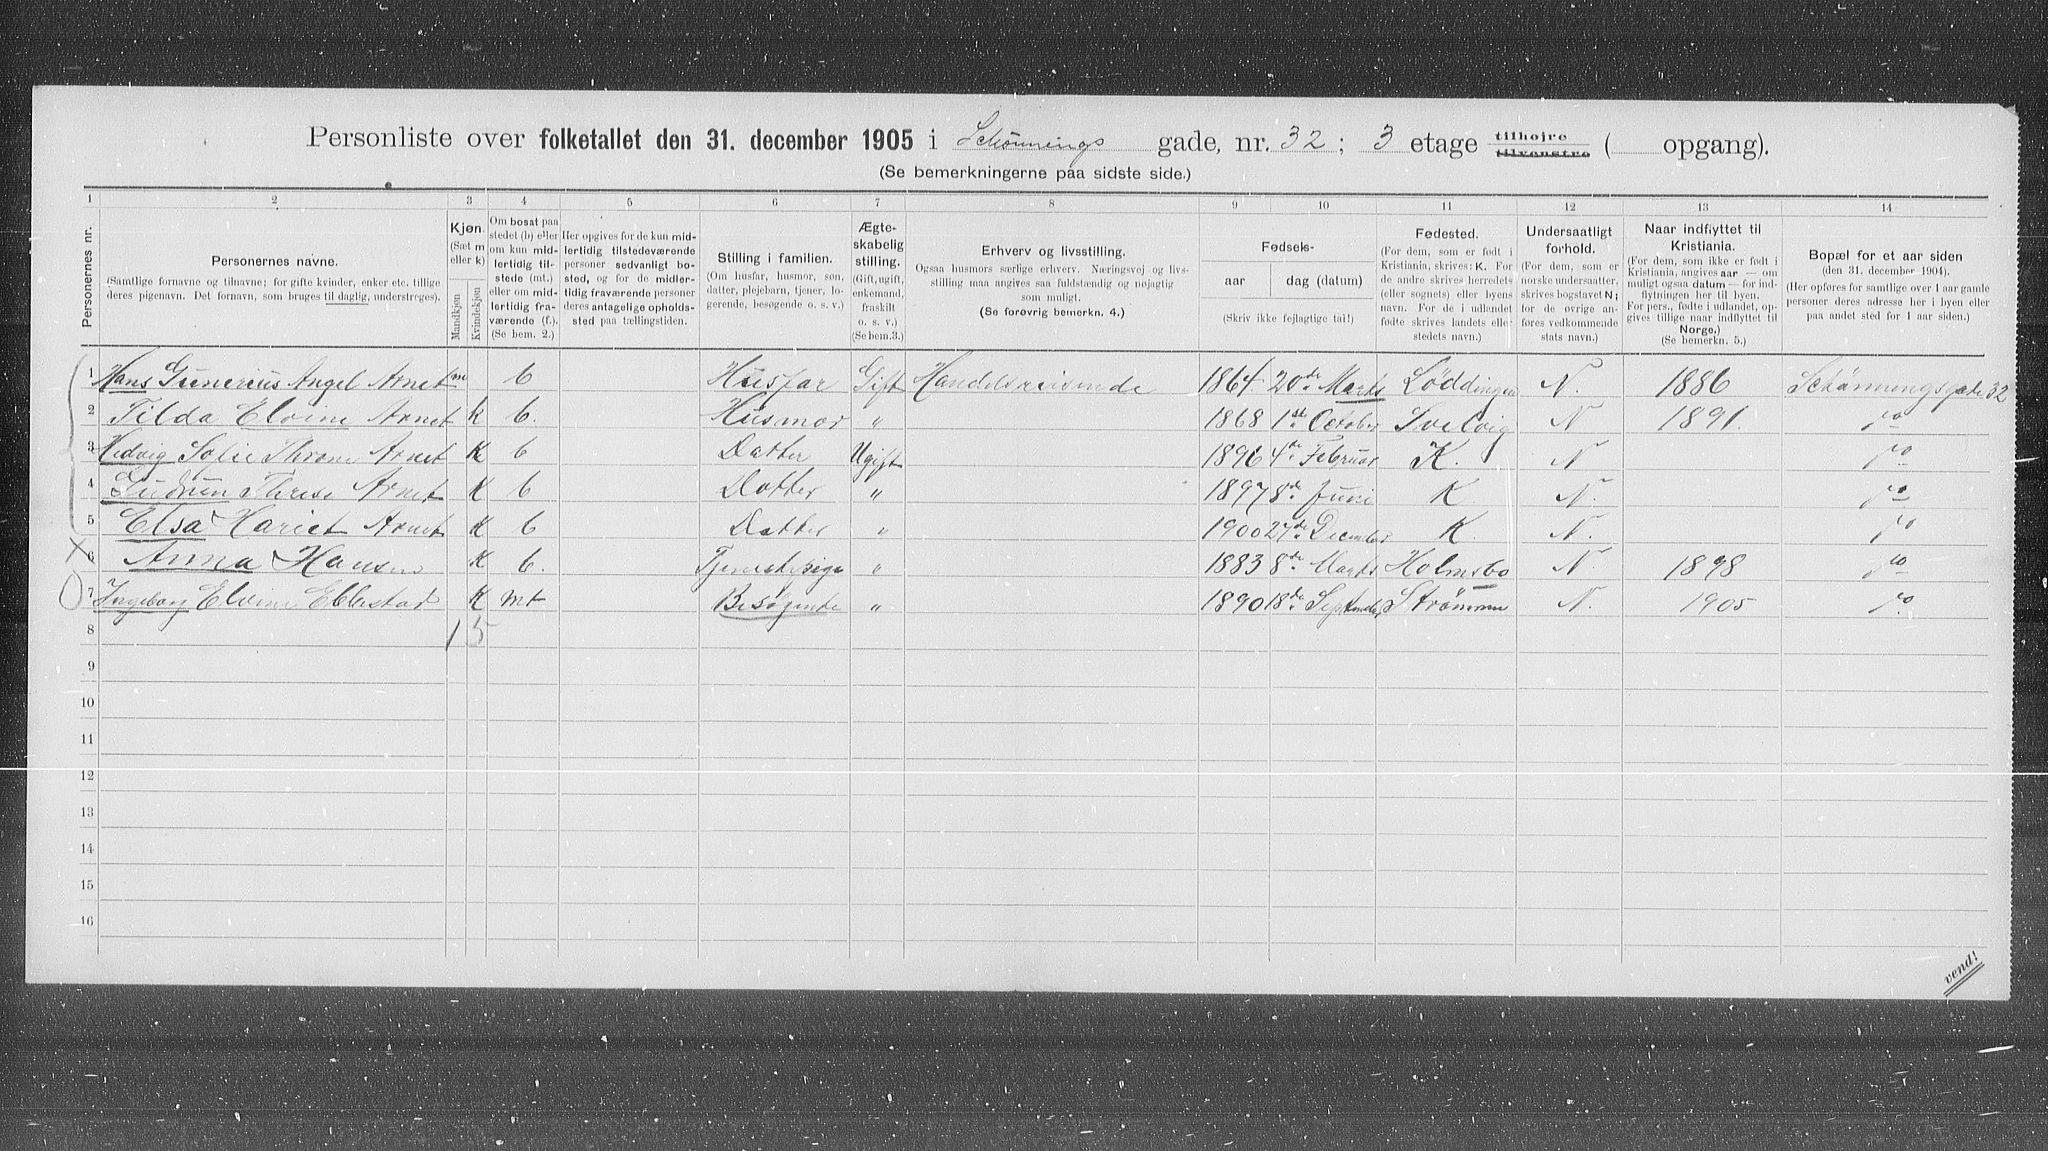 Personliste over folketallet den 31. december 1905 i Schønnings gade, nr. 32 ; 3 etage tilhøjre tilvenstre ( opgang).
(Se bemerkningerne paa sidste side.)
1 2 3 4 5 6 7 8 9 10 11 12 13 14
Personernes nr.
Personernes navne.
(Samtlige fornavne og tilnavne; for gifte kvinder, enker etc. tillige deres pigenavn. Det fornavn, som bruges til daglig, understreges).
Kjøn.
(Sæt m eller k)
Mandkjøn
Kvindekjøn
Om bosat paa stedet (b) eller om kun midlertidig tilstede (mt.) eller om midlertidig fraværende (f.). (Se bem. 2.)
Her opgives for de kun midlertidig tilstedeværende personer sedvanligt bosted, og for de midlertidig fraværende personer deres antagelige opholdssted paa tællingstiden.
Stilling i familien.
(Om husfar, husmor, søn, datter, plejebarn, tjener, logerende, besøgende o. s. v.)
Ægteskabelig stilling.
(Gift, ugift, enkemand, fraskilt o. s. v.)
(Se bem. 3.)
Erhverv og livsstilling.
Ogsaa husmors særlige erhverv. Næringsvej og livsstilling maa angives saa fuldstændig og nøjagtig som muligt.
(Se forøvrig bemerkn. 4.)
Fødsels-
aar dag (datum)
(Skriv ikke fejlagtige tal!)
Fødested.
(For dem, som er født i Kristiania, skrives: K. For de andre skrives herredets (eller sognets) eller byens navn. For de i udlandet fødte skrives landets eller stedets navn.)
Undersaatligt forhold.
(For dem, som er norske undersaatter, skrives bogstavet N; for de øvrige anføres vedkommende stats navn.)
Naar indflyttet til Kristiania.
(For dem, som ikke er født i Kristiania, angives aar — om muligt ogsaa datum — for indflytningen her til byen. For pers., fødte i udlandet, opgives tillige naar indflyttet til Norge.)
(Se bemerkn. 5.)
Bopæl for et aar siden
(den 31. december 1904).
(Her opføres for samtlige over 1 aar gamle personer deres adresse her i byen eller paa andet sted for 1 aar siden.)
1 Hans Gunerius Angel Arnet m b Husfar Gift Handelsreisende 1864 20de Marts Löddingen N. 1886 Schönningsgade 32
2 Tilda Elvine Arnet k b. Husmor " 1868 1ste October Svelvig N 1891. do
3 Hedvig Sofie Throne Arnet K b Datter Ugift 1896 4de Februar K. N do
4 Gudrun Therese Arnet K b Datter " 1897 8de Juni K. N. do
5 Elsa Hariet Arnet K b Datter " 1900 27de December K. N. do
6 Anna Hansen K b. Tjenestepige " 1883 8de Marts Holmsbo N. 1898 do
7 Ingeborg Elvine Ebbestad K mt Besögende " 1890 18de September Strömmen N. 1905 do
8 1 5
9
10
11
12
13
14
15
16
vend!